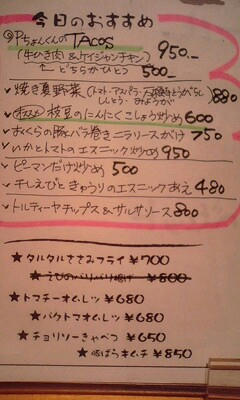 今日のおすすめ
Pちょんくんの TACOS
(牛ひき肉 & ケイジャンチキン) 950.-
↑どちらかひとつ 500.-
✓焼き夏野菜 (トマト・アスパラ・万願寺とうがらし 880
ししとう・みょうが
枝豆のにんにくこしょう炒め 600
✓おくらの豚バラ巻きニラソースがけ 750
✓いかとトマトのエスニック炒め 950
✓ピーマンだけ炒め 500
✓干しえびときゅうりのエスニックあえ 480
✓トルティーヤチップス&サルサソース 800
★タルタルささみフライ ¥700
★えびのパリパリ揚げ ¥800
★トマチーオムレツ ¥680
★パクトマオムレツ ¥680
★チョリソーきゃべつ ¥650
★豚ばらキムチ ¥850